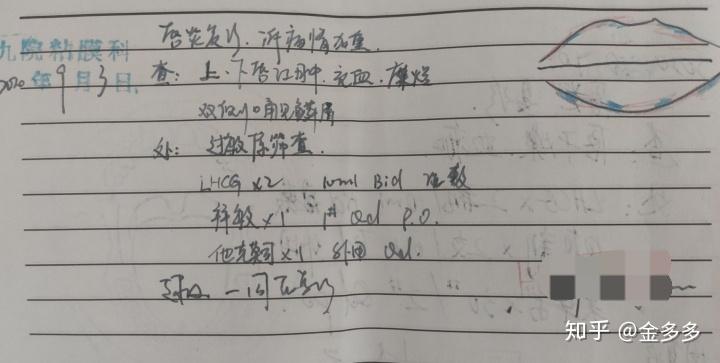 九院粘膜科
2020年9月3日
唇炎复诊,诉病情加重.
查:上、下唇红肿,充血,糜烂
双侧口角见鳞屑
处:过敏原筛查.
LHCG ×2 10ml Bid 湿敷
×1 1# Qd P.O.
他克莫司×1 外用 Qd.
一周后复诊
知乎 @金多多